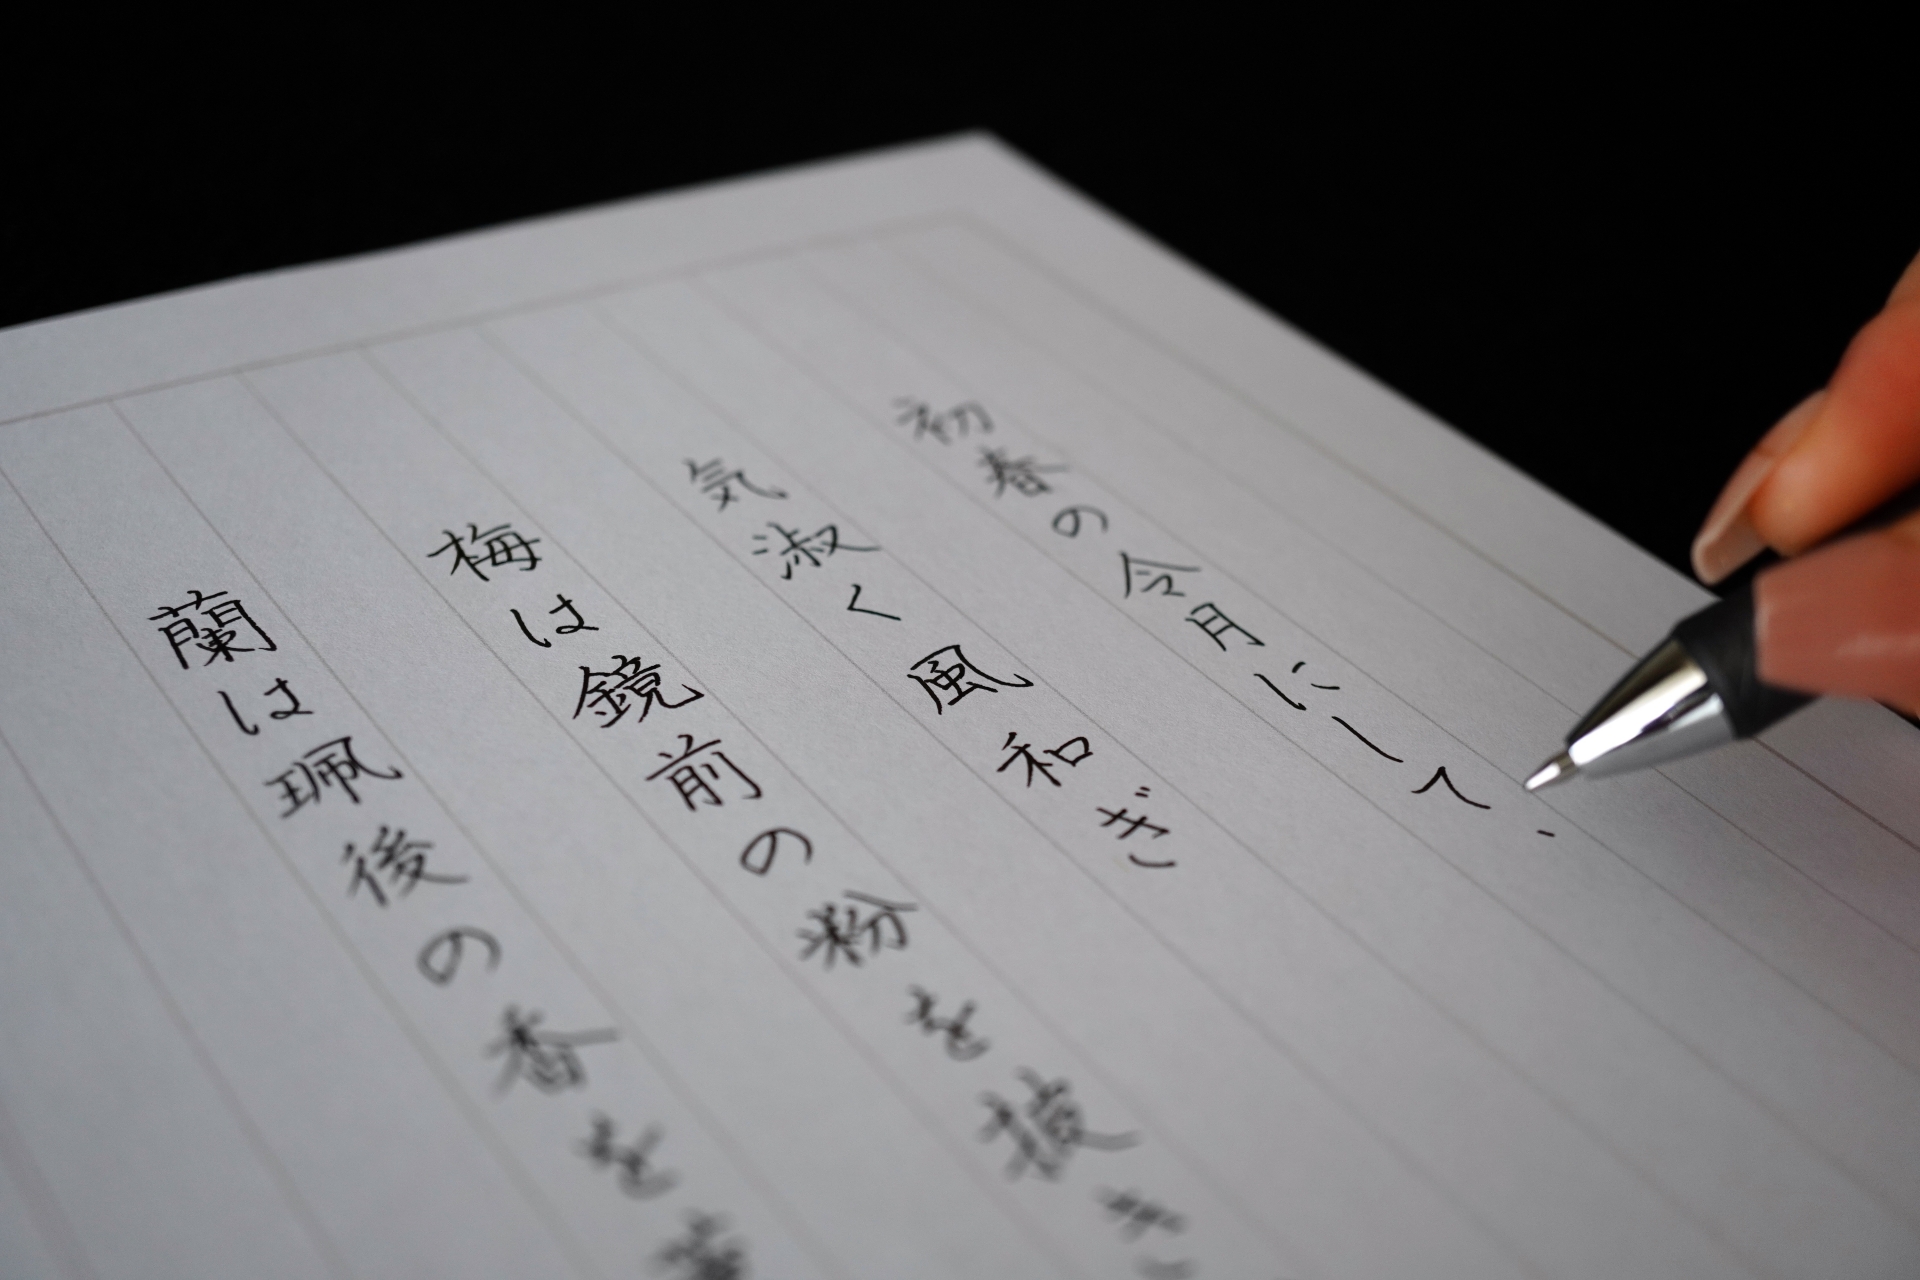 初春の令月にして、
気淑く風和ぎ
梅は鏡前の粉を披き
蘭は珮後の香を薫